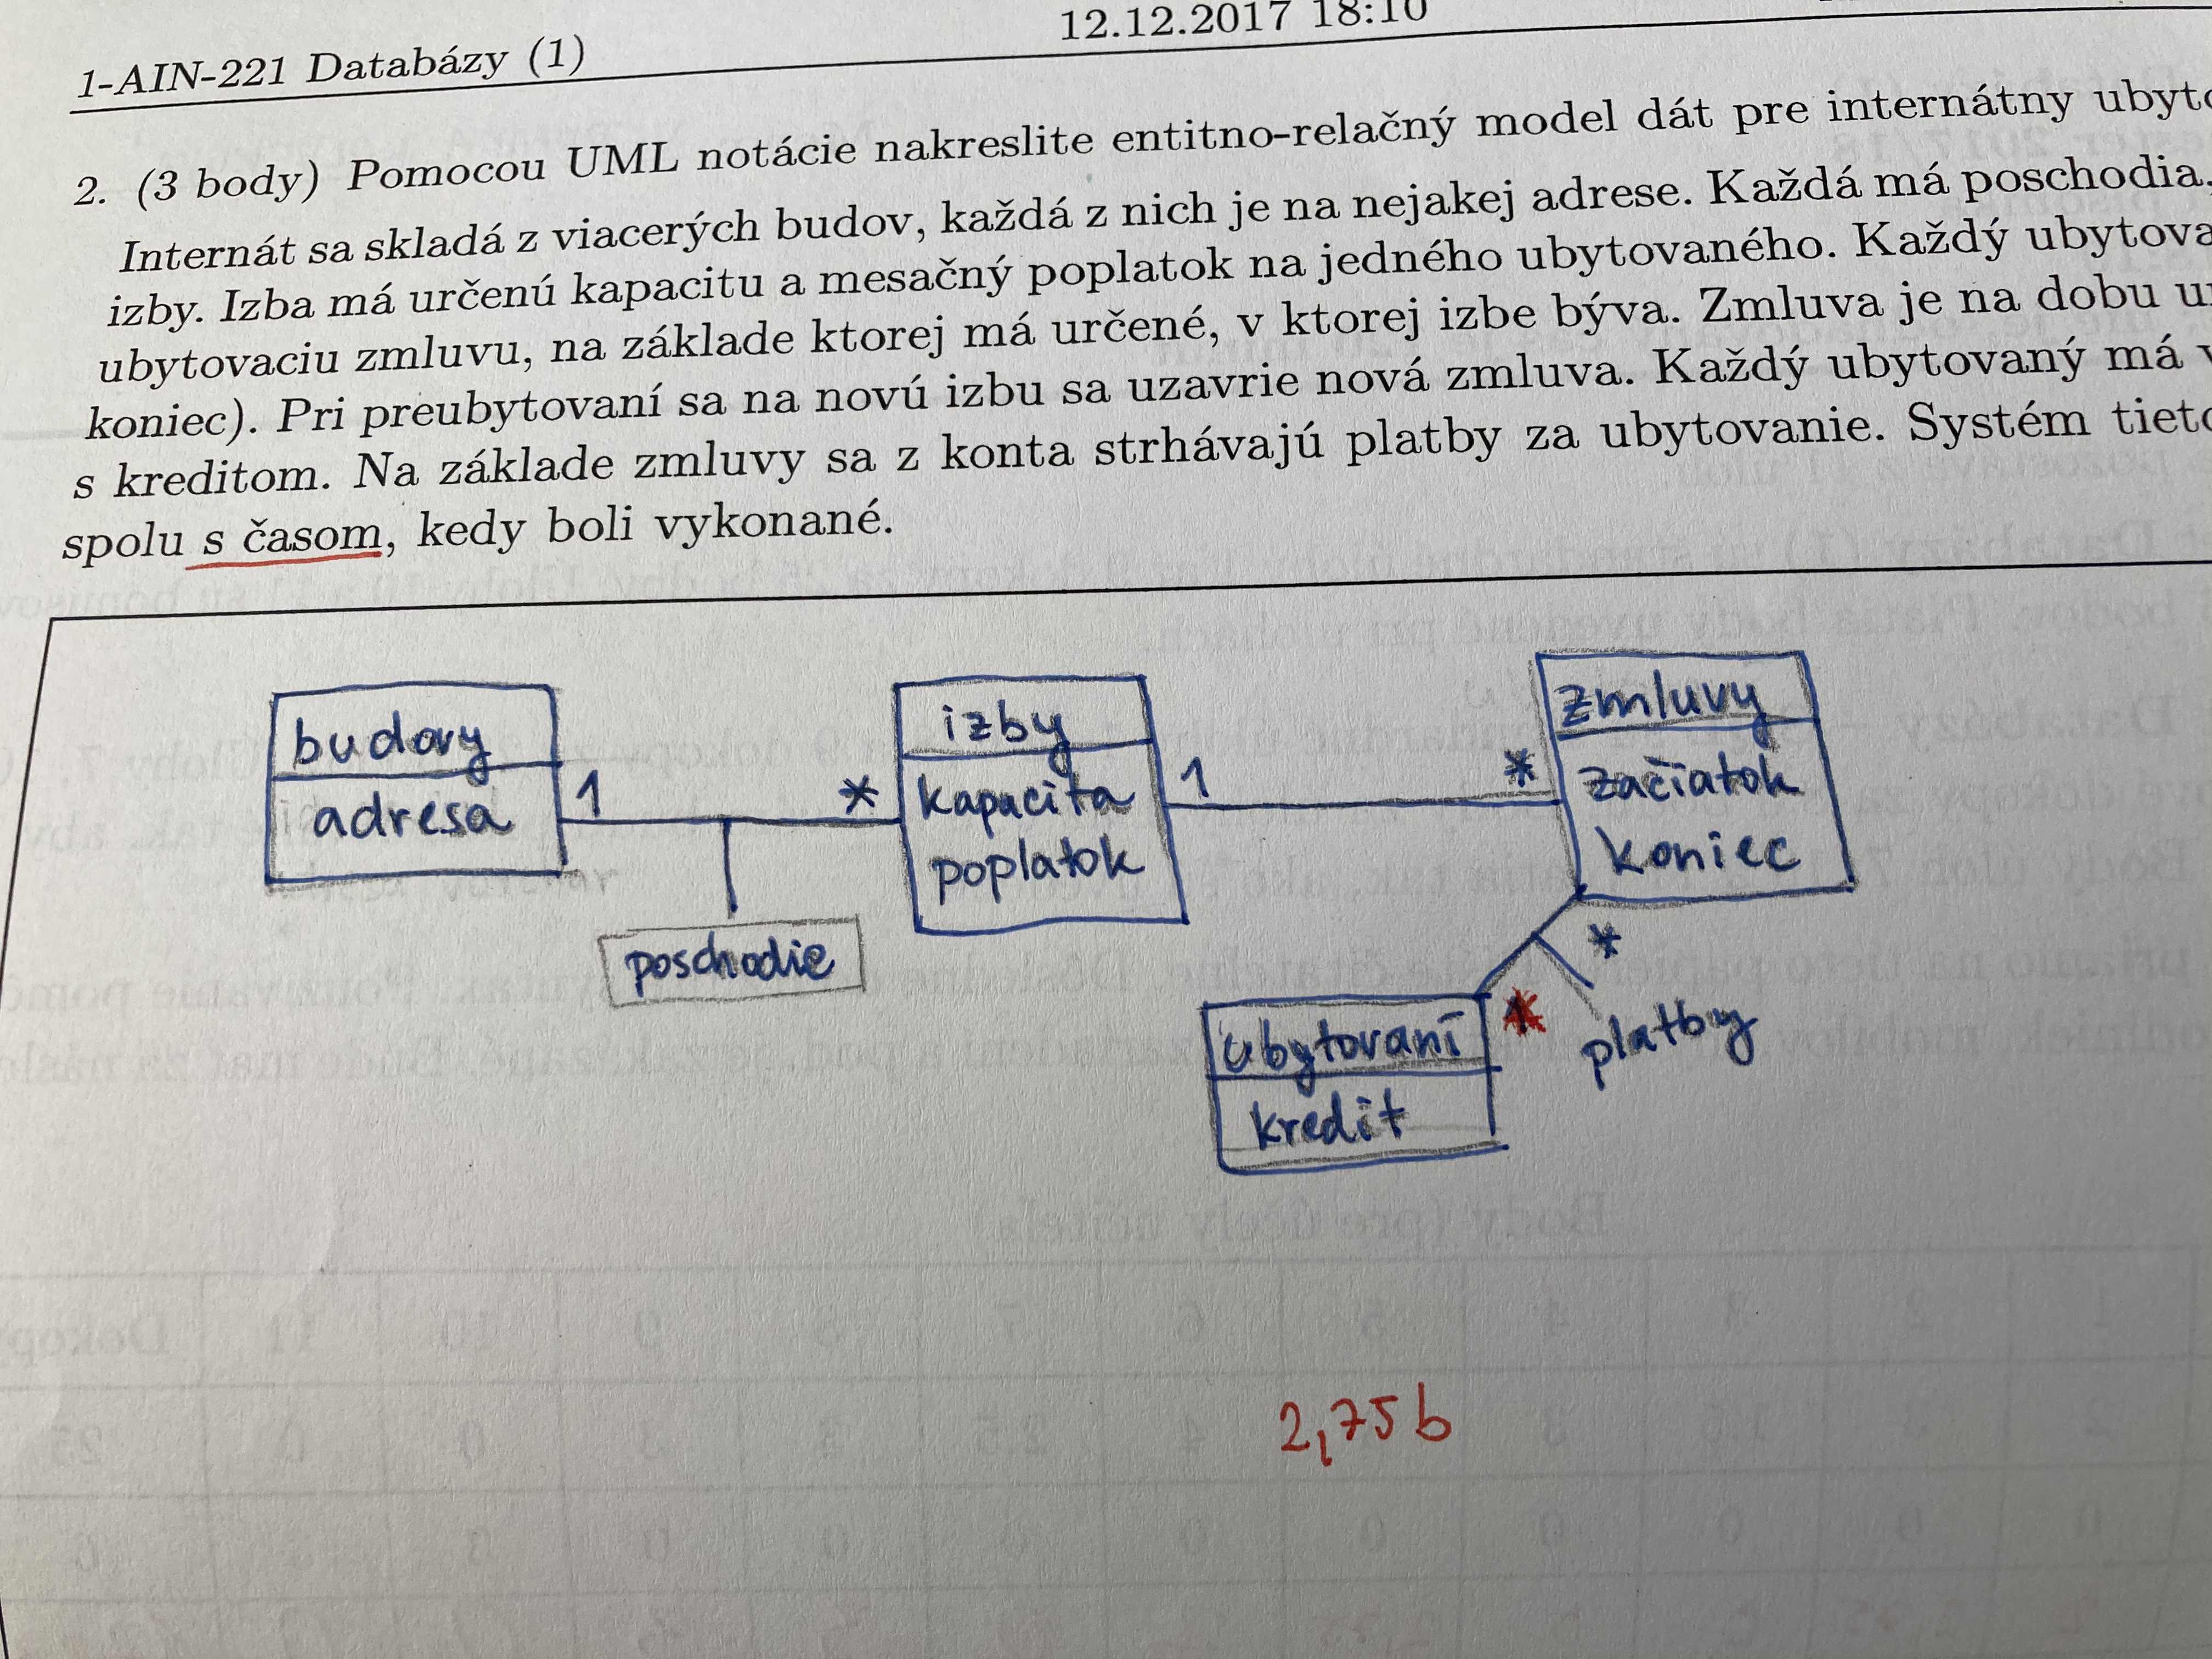 12.12.2017 18:10
1-AIN-221 Databázy (1)
2. (3 body) Pomocou UML notácie nakreslite entitno-relačný model dát pre internátny
Internát sa skladá z viacerých budov, každá z nich je na nejakej adrese. Každá má poschodia,
izby. Izba má určenú kapacitu a mesačný poplatok na jedného ubytovaného. Každý
ubytovaciu zmluvu, na základe ktorej má určené, v ktorej izbe býva. Zmluva je na dobu
koniec). Pri preubytovaní sa na novú izbu sa uzavrie nová zmluva. Každý ubytovaný má
s kreditom. Na základe zmluvy sa z konta strhávajú platby za ubytovanie. Systém
spolu s časom, kedy boli vykonané.
budovy
adresa
1
*
poschodie
izby
kapacita
poplatok
1
*
zmluvy
začiatok
koniec
*
platby
ubytovaní
kredit
2,75b